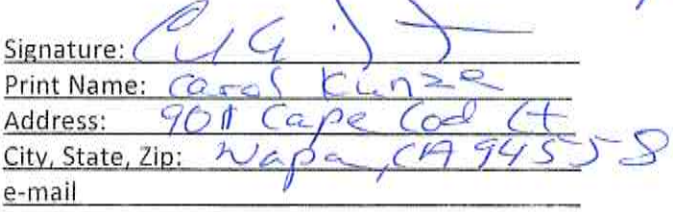 Signature:
Print Name: Carol Kunze
Address: 901 Cape Cod Ct
City, State, Zip: Napa, CA 94558
e-mail